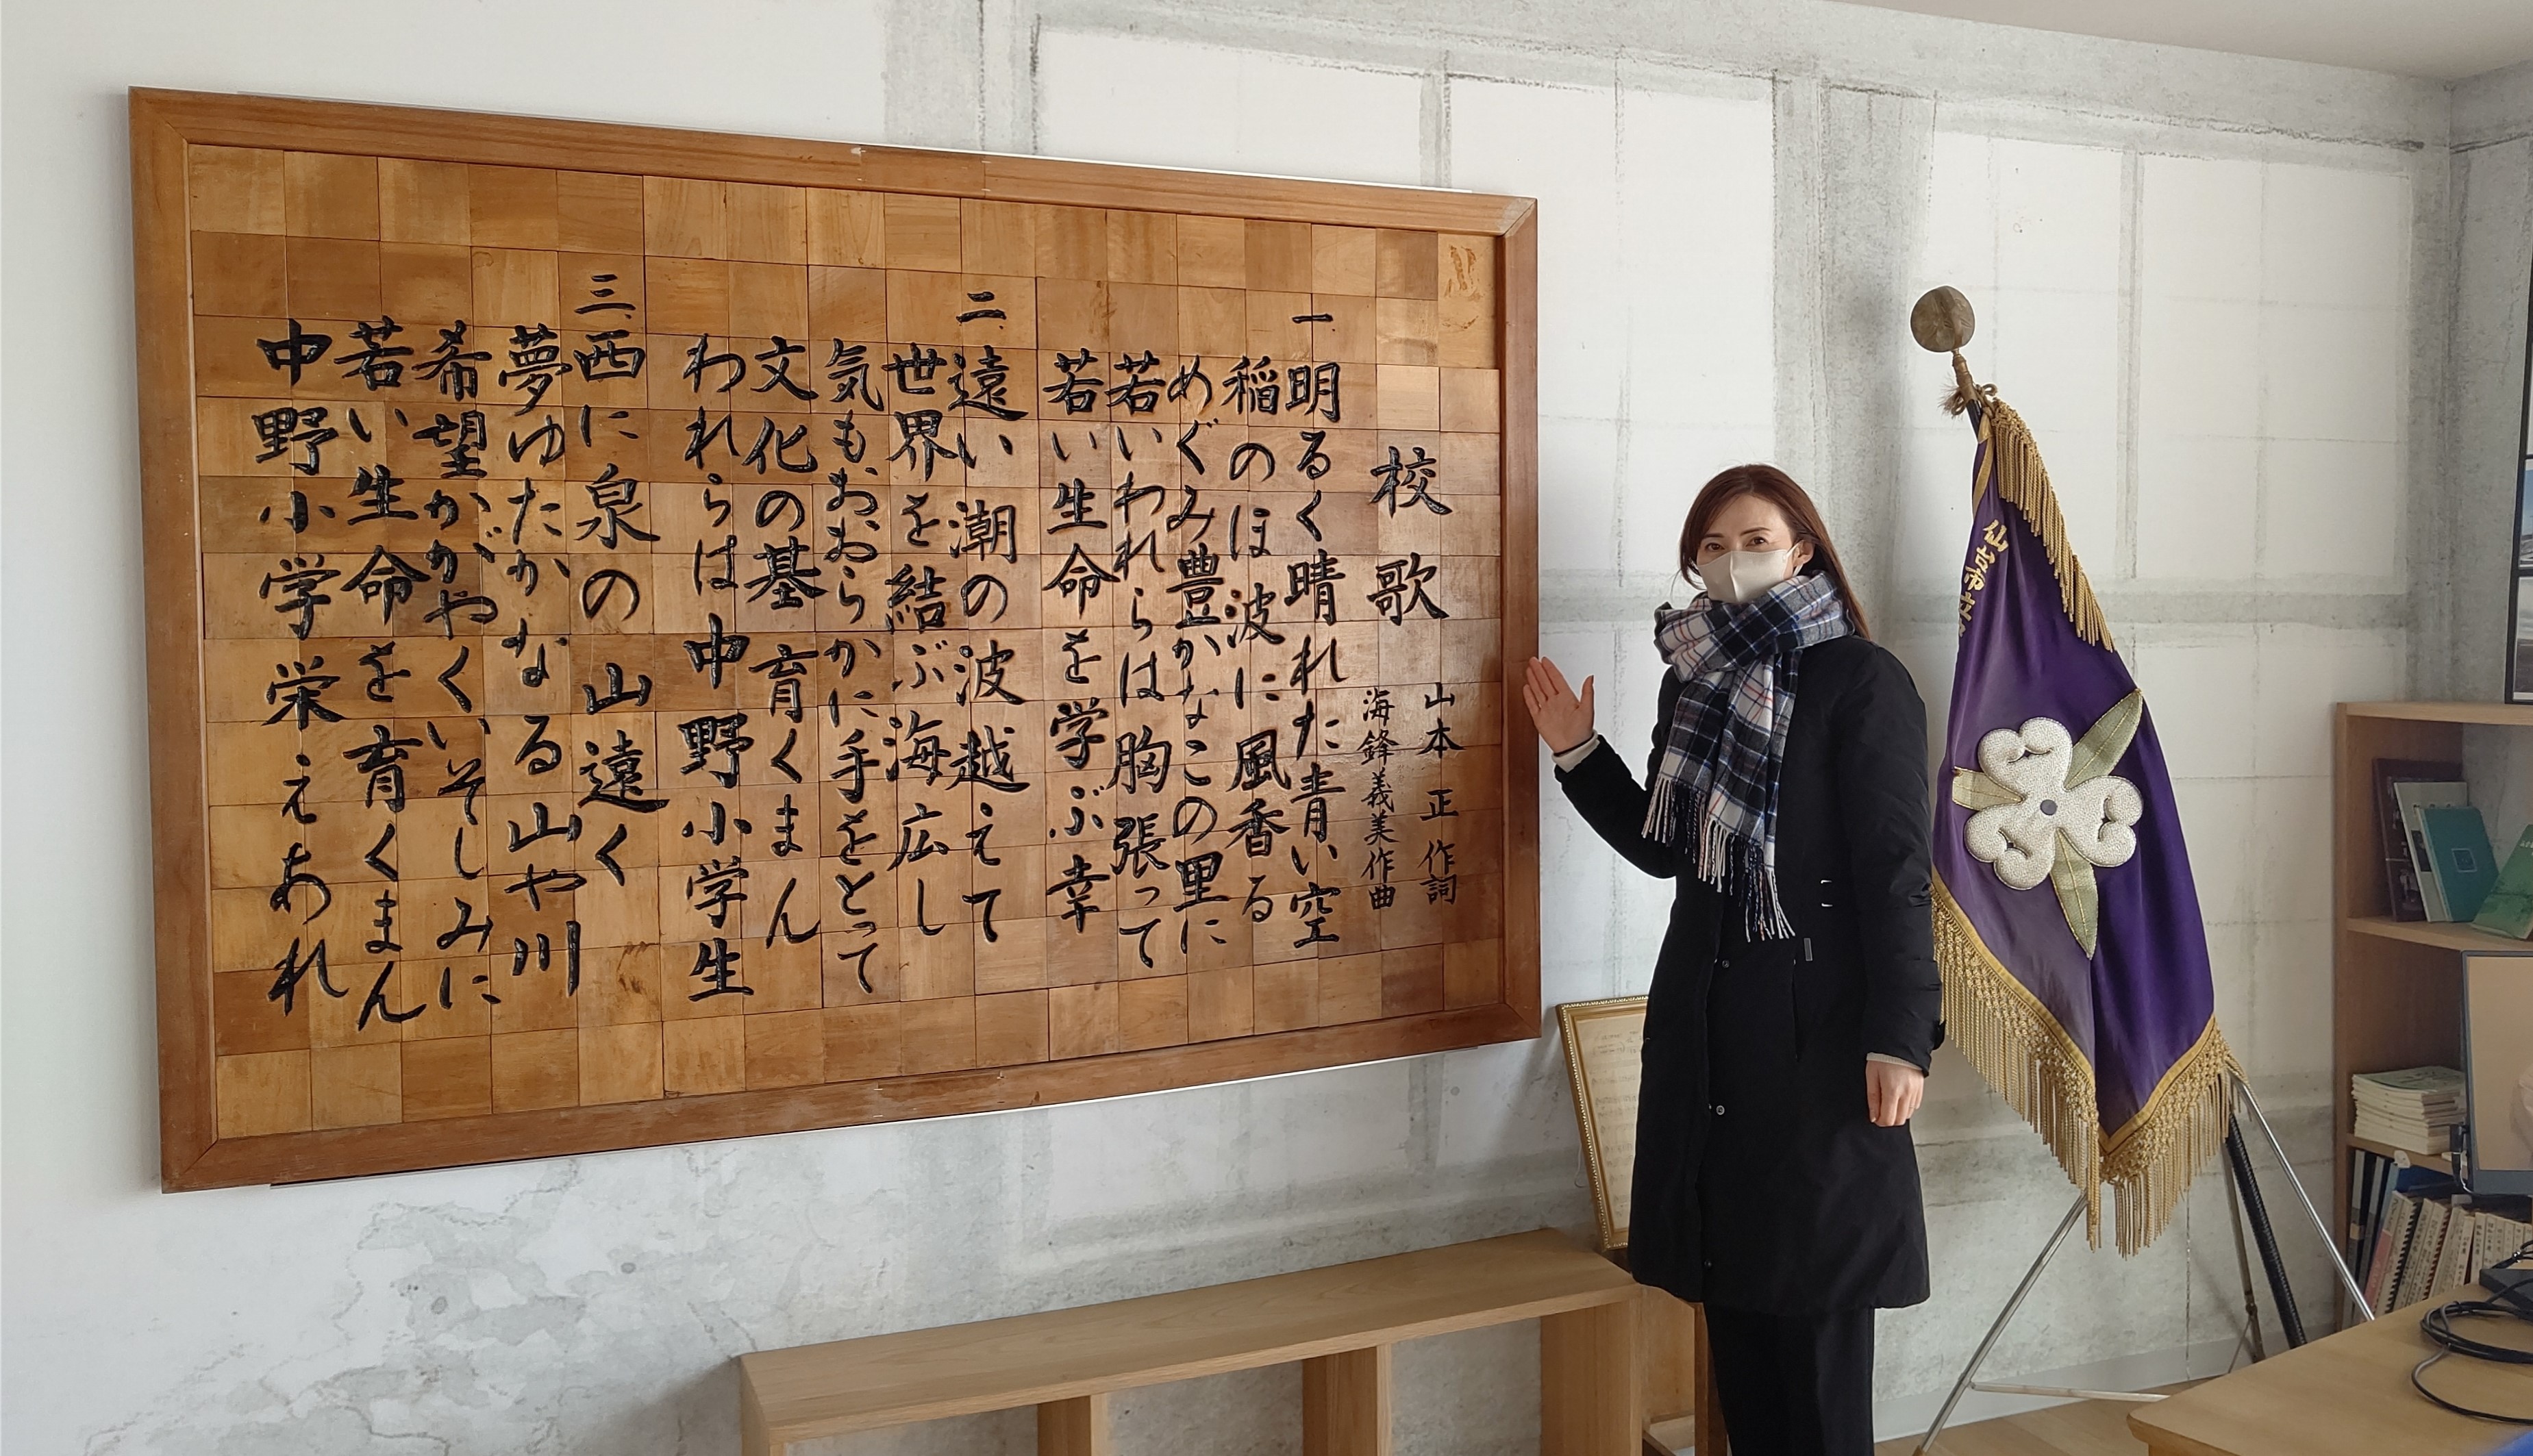 校歌
山本正作詞
海鋒義美作曲
一明るく晴れた青い空
稲のほ波に風香る
めぐみ豊かなこの里に
若いわれらは胸張って
若い生命を学ぶ幸
二、遠い潮の波越えて
世界を結ぶ海広し
気もおおらかに手をとって
文化の基育くまん
われらは中野小学生
三、西に泉の山遠く
夢ゆたかなる山や川
希望かがやくいそしみに
若い生命を育くまん
中野小学栄えあれ
仙台市立